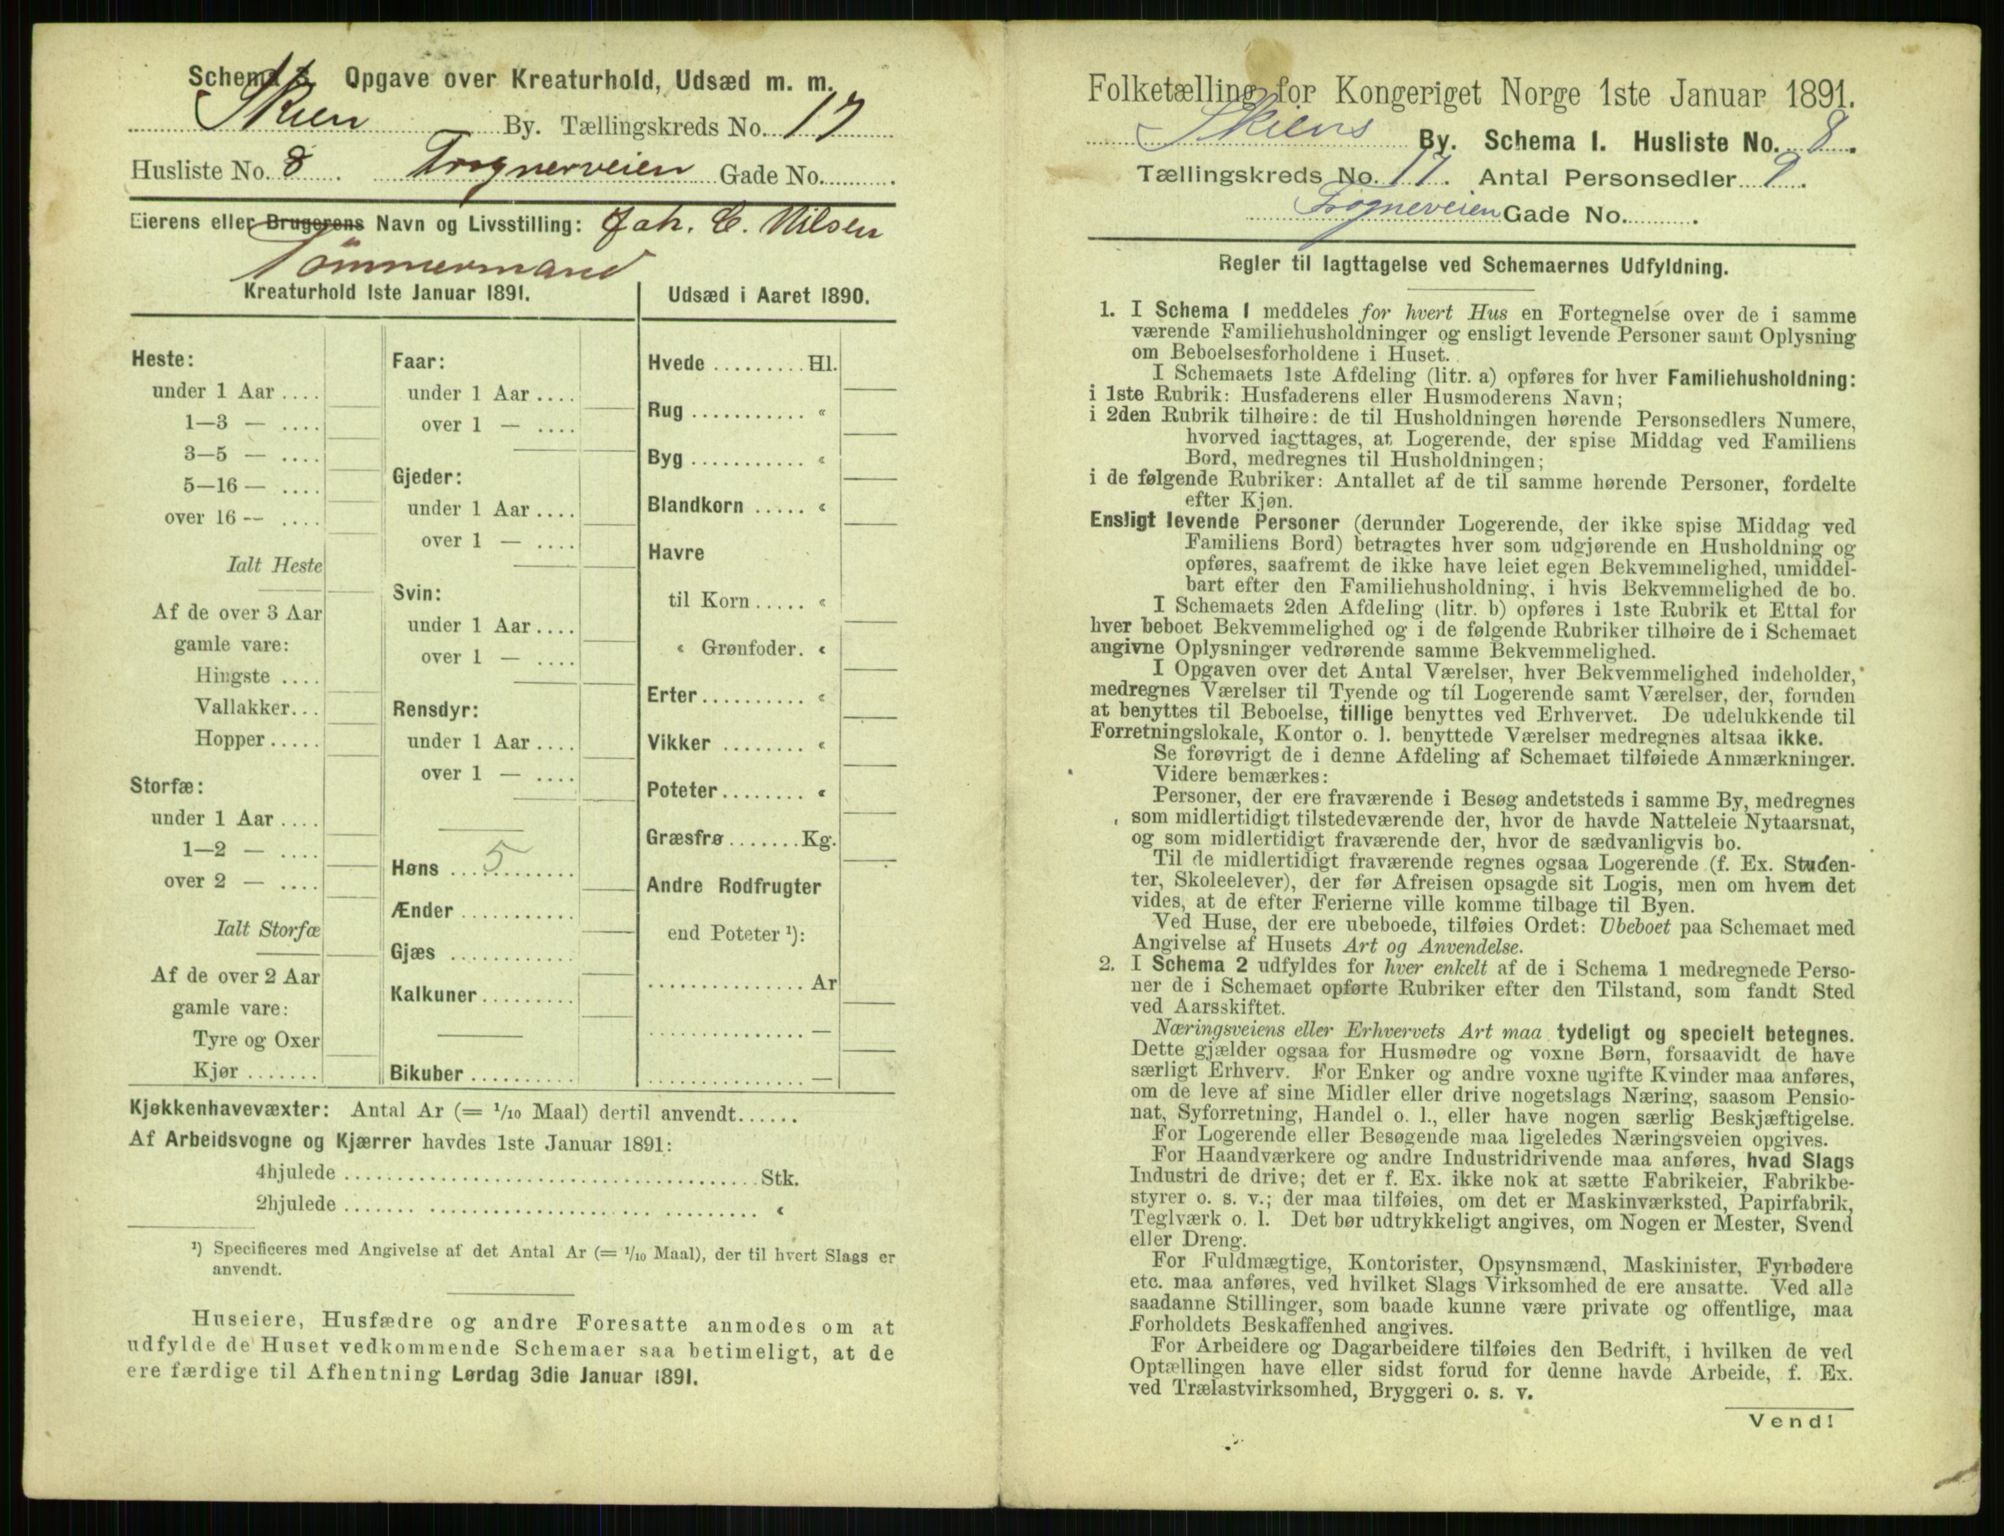 Schema 3. Opgave over Kreaturhold, Udsæd m. m.
Skien By. Tællingskreds No. 17
Husliste No. 8. Frognerveien Gade No. .
Eierens eller Brugerens Navn og Livsstilling: Joh. C. Nilsen
Tömmermand
Kreaturhold 1ste Januar 1891.
Heste:
under 1 Aar ....
1—3 — ....
3—5 — ....
5—16 — ....
over 16 — ....
Ialt Heste
Af de over 3 Aar
gamle vare:
Hingste ....
Vallakker...
Hopper .....
Storfæ:
under 1 Aar ....
1—2 — ....
over 2 — ....
Ialt Storfæ
Af de over 2 Aar
gamle vare:
Tyre og Oxer
Kjør .......
Faar:
under 1 Aar ....
over 1 — ....
Gjeder:
under 1 Aar ....
over 1 — ....
Svin:
under 1 Aar ....
over 1 — ....
Rensdyr:
under 1 Aar ....
over 1 — ....
Høns 5
Ænder ..........
Gjæs ...........
Kalkuner ........
Bikuber .........
Udsæd i Aaret 1890.
Hvede ......... Hl.
Rug ........... «
Byg ........... «
Blandkorn ..... «
Havre
til Korn ..... «
« Grønfoder. «
Erter .......... «
Vikker ........ «
Poteter ........ «
Græsfrø ....... Kg.
Andre Rodfrugter
end Poteter ¹):
............... Ar
............... —
............... —
Kjøkkenhavevæxter: Antal Ar (= 1/10 Maal) dertil anvendt......
Af Arbeidsvogne og Kjærrer havdes 1ste Januar 1891:
4hjulede ....................................... Stk.
2hjulede ....................................... «
¹) Specificeres med Angivelse af det Antal Ar (= 1/10 Maal), der til hvert Slags er
anvendt.
Huseiere, Husfædre og andre Foresatte anmodes om at
udfylde de Huset vedkommende Schemaer saa betimeligt, at de
ere færdige til Afhentning Lørdag 3die Januar 1891.
Folketælling for Kongeriget Norge 1ste Januar 1891.
Skiens By. Schema I. Husliste No. 8.
Tællingskreds No. 17. Antal Personsedler 9.
Frogneveien Gade No. .
Regler til Iagttagelse ved Schemaernes Udfyldning.
1. I Schema 1 meddeles for hvert Hus en Fortegnelse over de i samme
værende Familiehusholdninger og ensligt levende Personer samt Oplysning
om Beboelsesforholdene i Huset.
I Schemaets 1ste Afdeling (litr. a) opføres for hver Familiehusholdning:
i 1ste Rubrik: Husfaderens eller Husmoderens Navn;
i 2den Rubrik tilhøire: de til Husholdningen hørende Personsedlers Numere,
hvorved iagttages, at Logerende, der spise Middag ved Familiens
Bord, medregnes til Husholdningen;
i de følgende Rubriker: Antallet af de til samme hørende Personer, fordelte
efter Kjøn.
Ensligt levende Personer (derunder Logerende, der ikke spise Middag ved
Familiens Bord) betragtes hver som udgjørende en Husholdning og
opføres, saafremt de ikke have leiet egen Bekvemmelighed, umiddel-
bart efter den Familiehusholdning, i hvis Bekvemmelighed de bo.
I Schemaets 2den Afdeling (litr. b) opføres i 1ste Rubrik et Ettal for
hver beboet Bekvemmelighed og i de følgende Rubriker tilhøire de i Schemaet
angivne Oplysninger vedrørende samme Bekvemmelighed.
I Opgaven over det Antal Værelser, hver Bekvemmelighed indeholder,
medregnes Værelser til Tyende og til Logerende samt Værelser, der, foruden
at benyttes til Beboelse, tillige benyttes ved Erhvervet. De udelukkende til
Forretningslokale, Kontor o. l. benyttede Værelser medregnes altsaa ikke.
Se forøvrigt de i denne Afdeling af Schemaet tilføiede Anmærkninger.
Videre bemærkes:
Personer, der ere fraværende i Besøg andetsteds i samme By, medregnes
som midlertidigt tilstedeværende der, hvor de havde Natteleie Nytaarsnat,
og som midlertidigt fraværende der, hvor de sædvanligvis bo.
Til de midlertidigt fraværende regnes ogsaa Logerende (f. Ex. Studen-
ter, Skoleelever), der før Afreisen opsagde sit Logis, men om hvem det
vides, at de efter Ferierne ville komme tilbage til Byen.
Ved Huse, der ere ubeboede, tilføies Ordet: Ubeboet paa Schemaet med
Angivelse af Husets Art og Anvendelse.
2. I Schema 2 udfyldes for hver enkelt af de i Schema 1 medregnede Perso-
ner de i Schemaet opførte Rubriker efter den Tilstand, som fandt Sted
ved Aarsskiftet.
Næringsveiens eller Erhvervets Art maa tydeligt og specielt betegnes.
Dette gjælder ogsaa for Husmødre og voxne Børn, forsaavidt de have
særligt Erhverv. For Enker og andre voxne ugifte Kvinder maa anføres,
om de leve af sine Midler eller drive nogetslags Næring, saasom Pensio-
nat, Syforretning, Handel o. l., eller have nogen særlig Beskjæftigelse.
For Logerende eller Besøgende maa ligeledes Næringsveien opgives.
For Haandværkere og andre Industridrivende maa anføres, hvad Slags
Industri de drive; det er f. Ex. ikke nok at sætte Fabrikeier, Fabrikbe-
styrer o. s. v.; der maa tilføies, om det er Maskinværksted, Papirfabrik,
Teglværk o. l. Det bør udtrykkeligt angives, om Nogen er Mester, Svend
eller Dreng.
For Fuldmægtige, Kontorister, Opsynsmænd, Maskinister, Fyrbødere
etc. maa anføres, ved hvilket Slags Virksomhed de ere ansatte. Ved alle
saadanne Stillinger, som baade kunne være private og offentlige, maa
Forholdets Beskaffenhed angives.
For Arbeidere og Dagarbeidere tilføies den Bedrift, i hvilken de ved
Optællingen have eller sidst forud for denne havde Arbeide, f. Ex.
ved Trælastvirksomhed, Bryggeri o. s. v.
Vend!